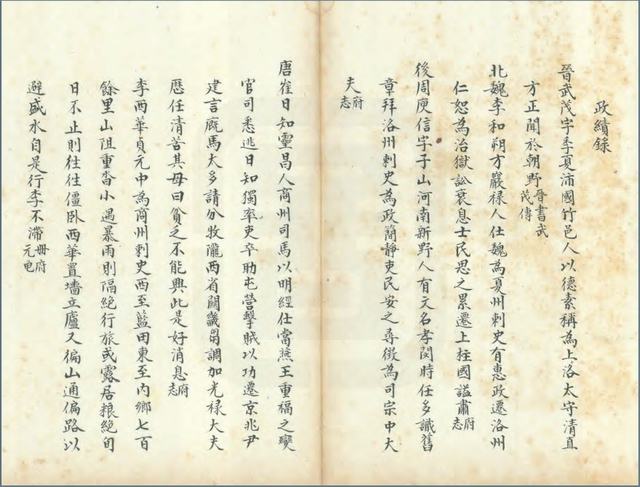 政績錄
晉武茂字季夏沛國竹邑人以德素稱為上洛太守清直
方正聞於朝野晉書武茂傳
北魏李和朔方巖祿人仕魏為夏州刺史有惠政遷洛州
仁恕為治獄訟衰息士民思之累遷上柱國謚肅府志
後周庾信字子山河南新野人有文名孝閔時任多識舊
章拜洛州刺史為政簡靜吏民安之尋徵為司宗中大
夫府志
唐崔日知靈昌人商州司馬以明經仕當譙王重福之變
官司悉逃日知獨率吏卒助屯營擊賊以功遷京兆尹
建言廐馬太多請分牧隴西省關畿芻調加光祿大夫
歷任清苦其母曰貧乏不能興此是好消息府志
李西華貞元中為商州刺史西至藍田東至內鄉七百
餘里山阻重沓小遇暴雨則隔絕行旅或露居糧絕旬
日不止則往往僵臥西華置墻立廬又徧山通偏路以
避盛水自是行李不滯冊府元龜